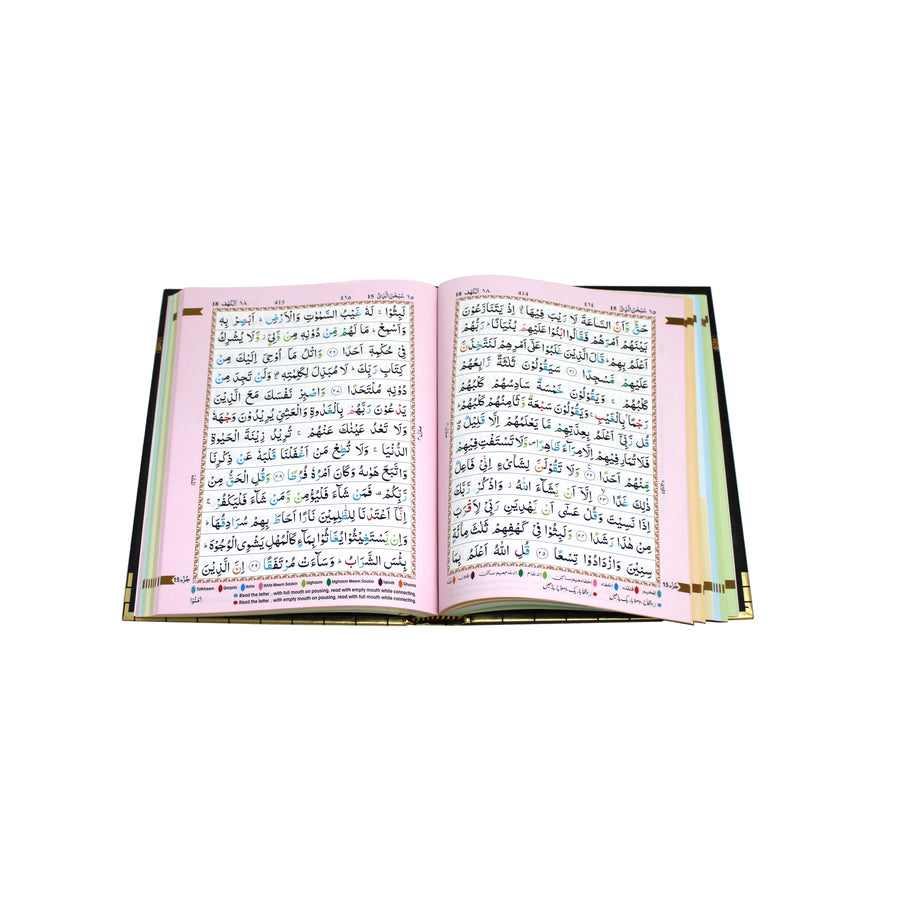 ١٥ سُبْحٰنَ الَّذِیْ 15 ٤١٤ 414 الْكَهْف ١٨ 18
حَقٌّ وَّاَنَّ السَّاعَةَ لَا رَیْبَ فِیْهَا ۚ اِذْ یَتَنَازَعُوْنَ
بَیْنَهُمْ اَمْرَهُمْ فَقَالُوا ابْنُوْا عَلَیْهِمْ بُنْیَانًا ؕ رَبُّهُمْ
اَعْلَمُ بِهِمْ ؕ قَالَ الَّذِیْنَ غَلَبُوْا عَلٰۤی اَمْرِهِمْ لَنَتَّخِذَنَّ
عَلَیْهِمْ مَّسْجِدًا ٢١ سَیَقُوْلُوْنَ ثَلٰثَةٌ رَّابِعُهُمْ
كَلْبُهُمْ ۚ وَیَقُوْلُوْنَ خَمْسَةٌ سَادِسُهُمْ كَلْبُهُمْ
رَجْمًۢا بِالْغَیْبِ ۚ وَیَقُوْلُوْنَ سَبْعَةٌ وَّثَامِنُهُمْ كَلْبُهُمْ ؕ
قُلْ رَّبِّیْۤ اَعْلَمُ بِعِدَّتِهِمْ مَّا یَعْلَمُهُمْ اِلَّا قَلِیْلٌ
فَلَا تُمَارِ فِیْهِمْ اِلَّا مِرَآءً ظَاهِرًا وَّلَا تَسْتَفْتِ فِیْهِمْ
مِّنْهُمْ اَحَدًا ٢٢ وَلَا تَقُوْلَنَّ لِشَایْءٍ اِنِّیْ فَاعِلٌ
ذٰلِكَ غَدًا ٢٣ اِلَّاۤ اَنْ یَّشَآءَ اللّٰهُ وَاذْكُرْ رَّبَّكَ
اِذَا نَسِیْتَ وَقُلْ عَسٰۤی اَنْ یَّهْدِیَنِ رَبِّیْ لِاَقْرَبَ
مِنْ هٰذَا رَشَدًا ٢٤ وَلَبِثُوْا فِیْ كَهْفِهِمْ ثَلٰثَ مِائَةٍ
سِنِیْنَ وَازْدَادُوْا تِسْعًا ٢٥ قُلِ اللّٰهُ اَعْلَمُ بِمَا
15 جُزْء
١٥ سُبْحٰنَ الَّذِیْ 15 ٤١٥ 415 الْكَهْف ١٨ 18
لَبِثُوْا ۚ لَهٗ غَیْبُ السَّمٰوٰتِ وَالْاَرْضِ ؕ اَبْصِرْ بِهٖ
وَاَسْمِعْ ؕ مَا لَهُمْ مِّنْ دُوْنِهٖ مِنْ وَّلِیٍّ ۫ وَّلَا یُشْرِكُ
فِیْ حُكْمِهٖۤ اَحَدًا ٢٦ وَاتْلُ مَاۤ اُوْحِیَ اِلَیْكَ مِنْ
كِتَابِ رَبِّكَ ؕ لَا مُبَدِّلَ لِكَلِمٰتِهٖ ۚ وَلَنْ تَجِدَ مِنْ
دُوْنِهٖ مُلْتَحَدًا ٢٧ وَاصْبِرْ نَفْسَكَ مَعَ الَّذِیْنَ
یَدْعُوْنَ رَبَّهُمْ بِالْغَدٰوةِ وَالْعَشِیِّ یُرِیْدُوْنَ وَجْهَهٗ
وَلَا تَعْدُ عَیْنٰكَ عَنْهُمْ ۚ تُرِیْدُ زِیْنَةَ الْحَیٰوةِ
الدُّنْیَا ۚ وَلَا تُطِعْ مَنْ اَغْفَلْنَا قَلْبَهٗ عَنْ ذِكْرِنَا
وَاتَّبَعَ هَوٰىهُ وَكَانَ اَمْرُهٗ فُرُطًا ٢٨ وَقُلِ الْحَقُّ مِنْ
رَّبِّكُمْ ۫ فَمَنْ شَآءَ فَلْیُؤْمِنْ وَّمَنْ شَآءَ فَلْیَكْفُرْ ۙ
اِنَّاۤ اَعْتَدْنَا لِلظّٰلِمِیْنَ نَارًا ۙ اَحَاطَ بِهِمْ سُرَادِقُهَا ؕ
وَاِنْ یَّسْتَغِیْثُوْا یُغَاثُوْا بِمَآءٍ كَالْمُهْلِ یَشْوِی الْوُجُوْهَ ؕ
بِئْسَ الشَّرَابُ ؕ وَسَآءَتْ مُرْتَفَقًا ٢٩ اِنَّ الَّذِیْنَ
اٰمَنُوْا
15 جُزْء
Tafkheem Qalqala Ikhfa Ikhfa Meem Saakin Idgheem Idgheem Meem Saakin Ghunna
Read the letter , with full mouth on pausing, read with empty mouth while connecting
Read the letter , with empty mouth on pausing, read with full mouth while connecting.